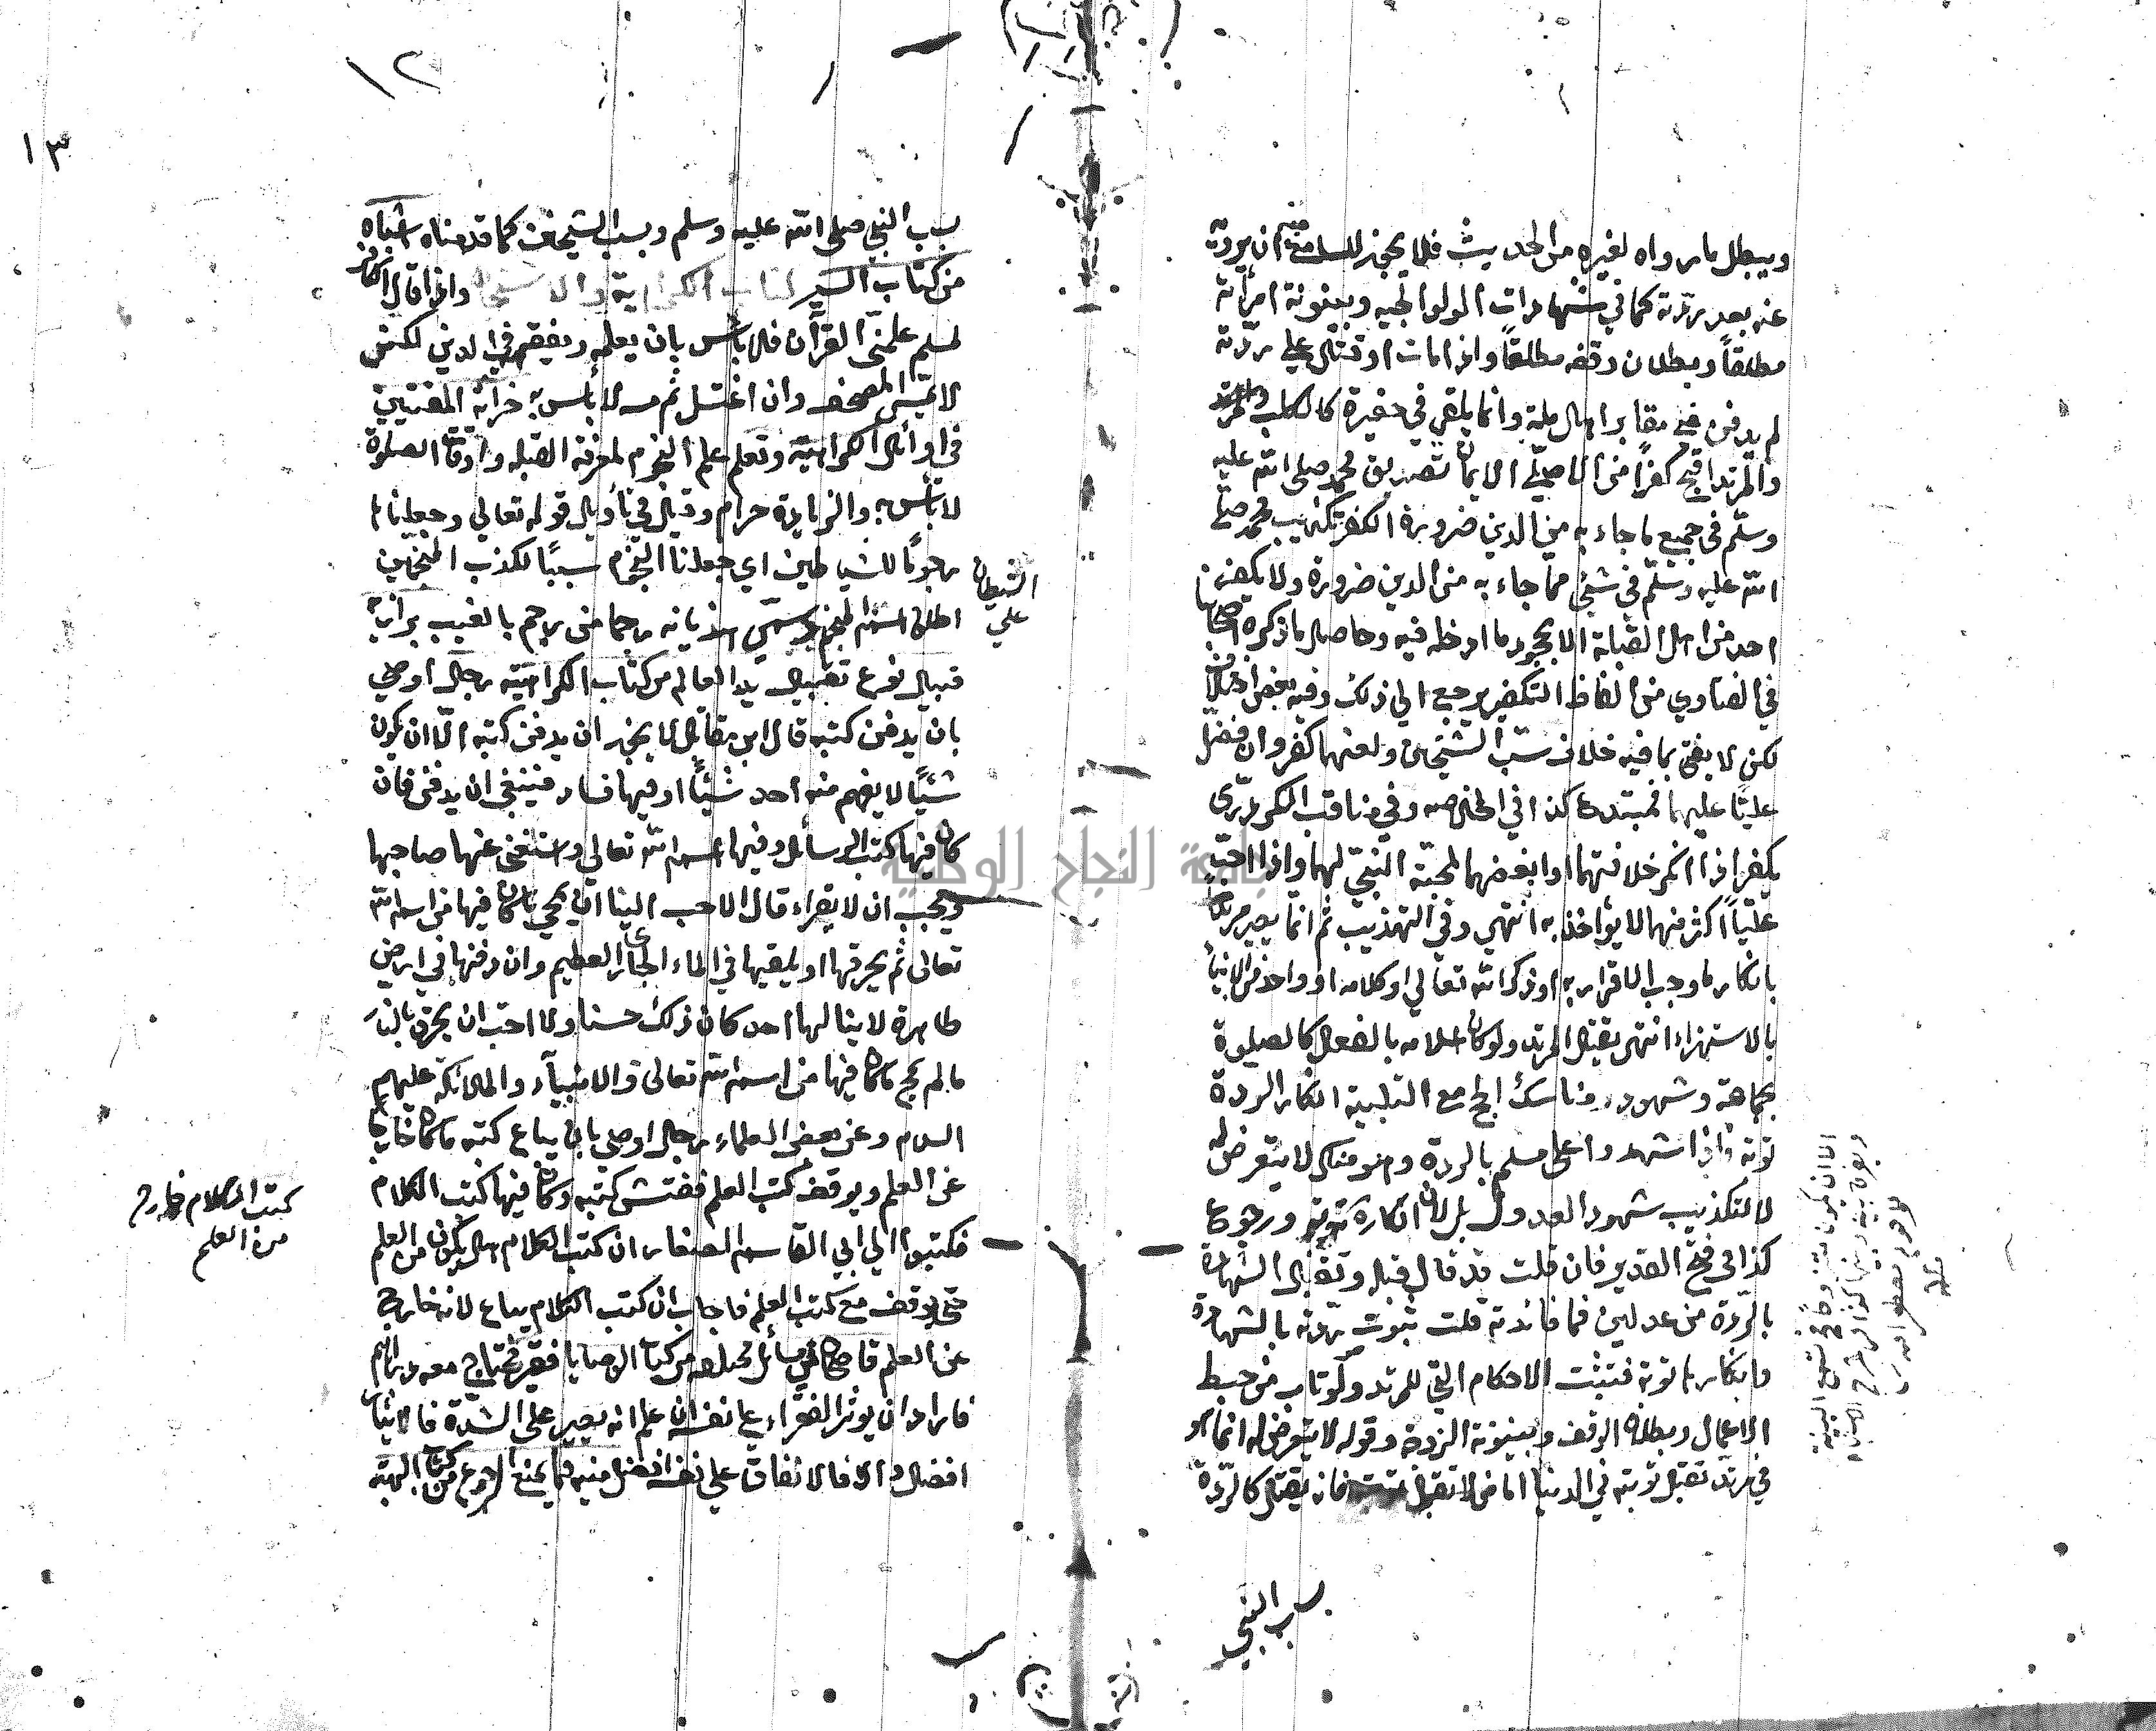 ويبطل ما رواه لغيره من الحديث فلا يجوز للسامع منه ان يرويه
عنه بعد ردته كما في شهادات الولوالجيه وبينونة امرأته
مطلقاً وبطلان وقفه مطلقاً واذا مات او قتل علي ردته
لم يدفن في مقابر اهل ملة وانما يلقي في حفيرة كالكلب والمرتد
والمرتد اقبح كفراً من الاصلي الايمان تصديق محمد صلي الله عليه
وسلم في جميع ما جاء به من الدين ضرورة الكفر تكذيب محمد صلي
الله عليه وسلم في شئ مما جاء به من الدين ضرورة ولا يكفر
احد من اهل القبلة الا بجحود ما ادخله فيه وحاصل ما ذكره اصحابنا
في الفتاوي من الفاظ التكفير يرجع الي ذلك وفيه بعض اختلاف
لكن لا يفتي بما فيه خلاف سب الشيخين ولعنهما كفر وان فضل
علياً عليهما فمبتدع كذا في الخلاصه وفي مناقب الكردري
يكفر اذا انكر خلافتهما او ابغضهما لمحبة النبي لهما واذا احب
علياً اكثر منهما لا يؤاخذ به انتهي وفي التهذيب ثم انما يصير مرتداً
بانكار ما وجب الاقرار به او ذكر الله تعالي او كلامه او واحد من الانبياء
بالاستهزاء انتهي يقتل المرتد ولو كان اسلامه بالفعل كالصلوة
بجماعة وشهود مناسك الحج مع التلبية انكار الردة
توبة فاذا شهدوا علي مسلم بالردة وهو منكر لا يتعرض له
لا لتكذيب شهود العدول بل لان انكاره توبة ورجوع
كذا في فتح القدير فان قلت قد قال قبله وتقبل الشهادة
بالردة من عدلين فما فائدته قلت ثبوت ردته بالشهادة
وانكارها توبة فتثبت الاحكام التي للمرتد ولو تاب من حبط
الاعمال وبطلان الوقف وبينونة الزوجة وقوله لا يتعرض له انما هو
في مرتد تقبل توبته في الدنيا اما من لا تقبل توبته فانه يقتل كالردة
بسب النبي
١٢
١٣
بسب النبي صلي الله عليه وسلم وبسب الشيخين كما قدمناه اشباه
من كتاب السير كتاب الكراهية والاستحسان واذا قال الكافر
لمسلم علمني القرآن فلا بأس بان يعلمه ويفقهه في الدين لكن
لا يمس المصحف وان اغتسل ثم مسه لا بأس به خزانة المفتيين
في اوائل الكراهية وتعلم علم النجوم لمعرفة القبله واوقات الصلوة
لا بأس به والزيادة حرام وقيل في تأويل قوله تعالي وجعلناها
رجوماً للشياطين اي جعلنا النجوم سبباً لكذب المنجمين
الشيطان علي
قبيل نوع تقبيل يد العالم من كتاب الكراهية رجل اوصي
بان يدفن كتبه قال ابن مقاتل لا يجوز ان يدفن كتبه الا ان يكون
شيئاً لا يفهم منه احد شيئاً او فيها فساد فينبغي ان يدفن فان
كان فيها كتب الرسائل وفيها اسم الله تعالي واستغني عنها صاحبها
ويحب ان لا يقراء قال الاحب الينا ان يمحي ما كان فيها من اسم الله
تعالي ثم يحرقها او يلقيها في الماء الجاري العظيم وان دفنها في ارض
طاهرة لا ينالها احد كان ذلك حسنا ولا احب ان يحرق بالنار
ما لم يمح ما كان فيها من اسم الله تعالي والانبياء والملائكة عليهم
السلام وعن بعض العلماء رجل اوصي بان يباع كتبه ما كان خارجاً
عن العلم ويوقف كتب العلم ففتش كتبه وكان فيها كتب الكلام
كتب الكلام خارج
من العلم
فكتبوا الي ابي القاسم الصفار ان كتب الكلام هل يكون من العلم
حتي يوقف مع كتب العلم فاجاب ان كتب الكلام يباع لانه خارج
عن العلم قاضيخان في مسائل مختلفه من كتاب الوصايا فقير محتاج معه دراهم
فاراد ان يؤثر الفقراء علي نفسه ان علم انه يصبر علي الشدة فالايثار
افضل والا فالانفاق علي نفسه افضل منيه فيما يمنع الرجوع من كتاب الهبة
جامعة النجاح الوطنية